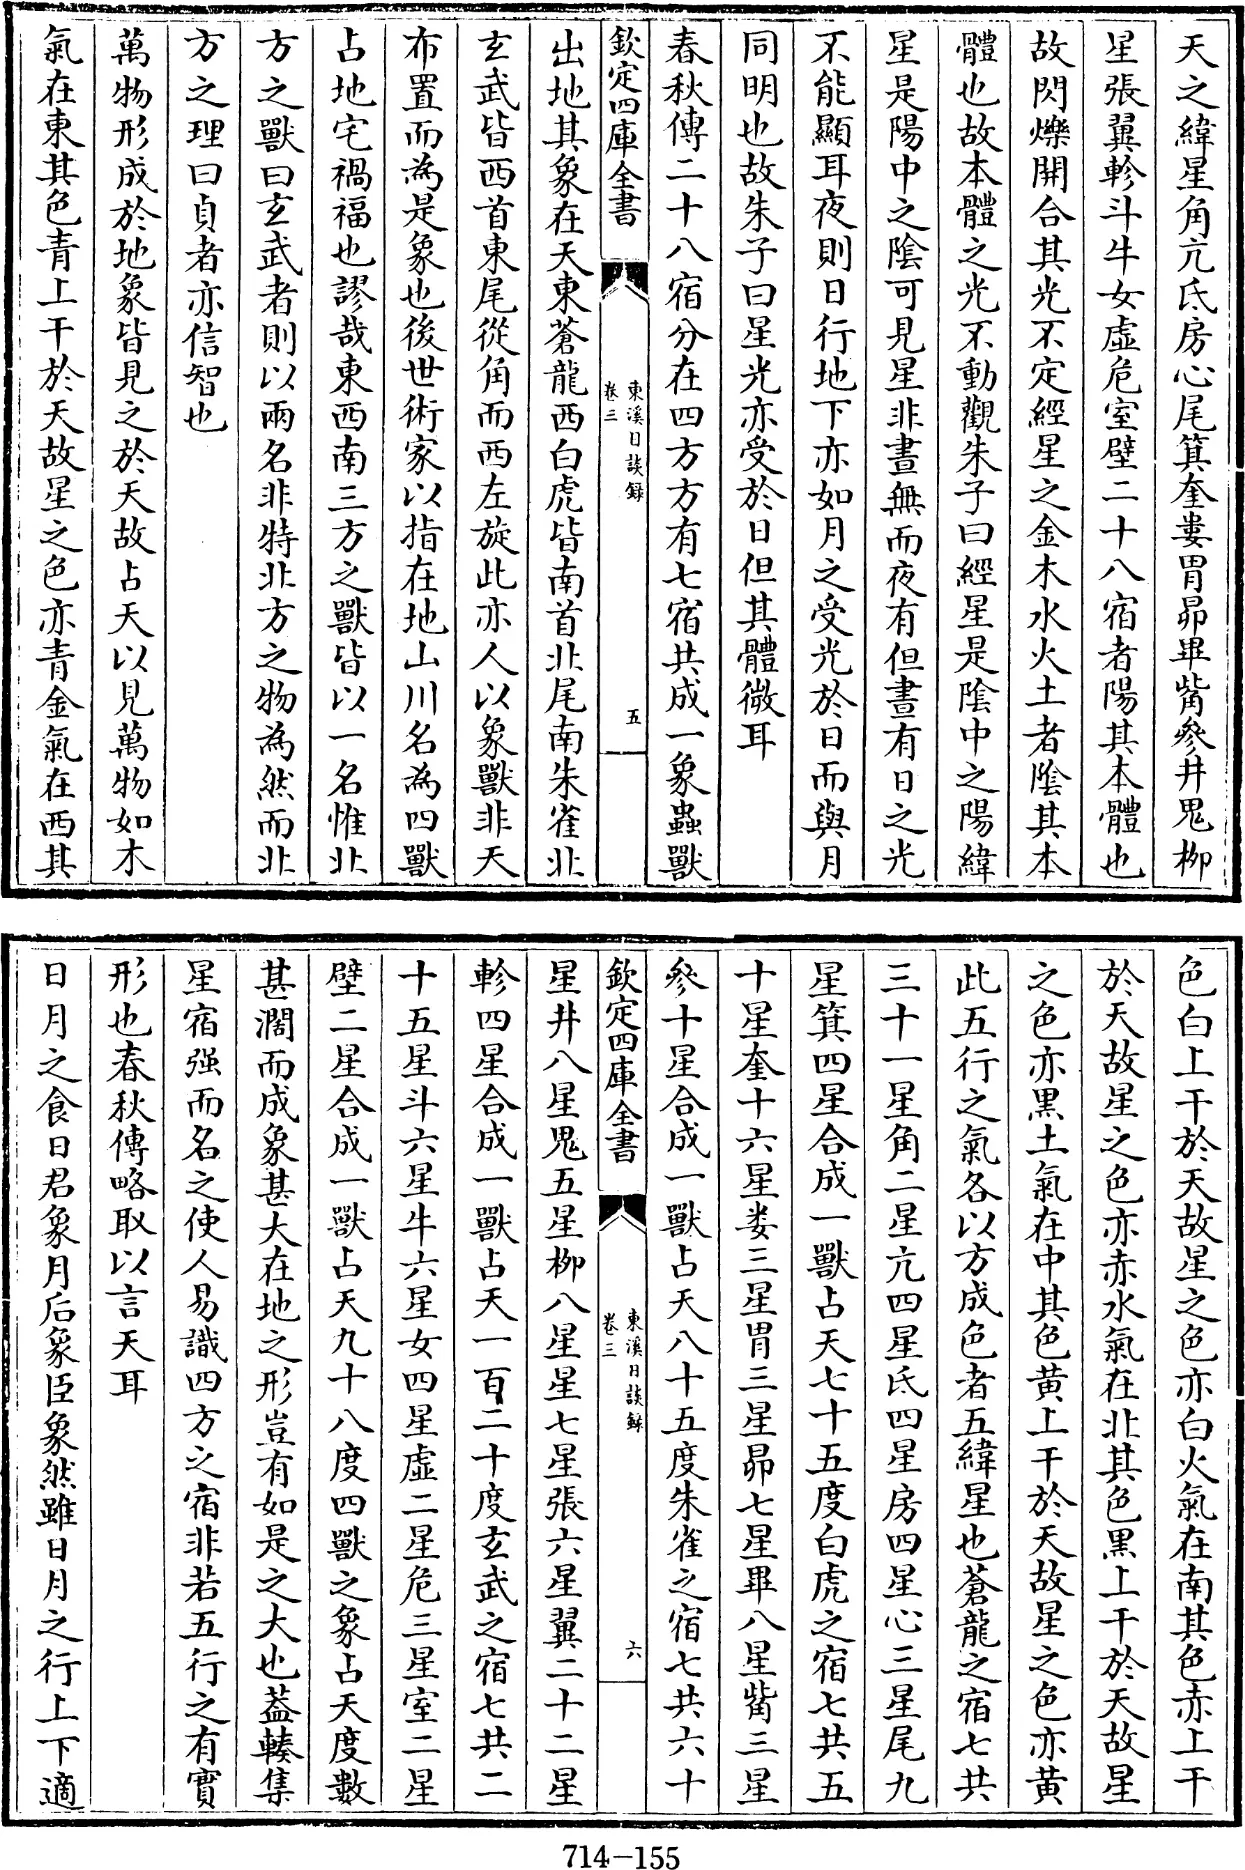 天之緯星角亢氐房心尾箕奎婁胃昴畢觜參井鬼柳
星張翼軫斗牛女虛危室壁二十八宿者陽其本體也
故閃爍開合其光不定經星之金木水火土者陰其本
體也故本體之光不動觀朱子曰經星是陰中之陽緯
星是陽中之陰可見星非晝無而夜有但晝有日之光
不能顯耳夜則日行地下亦如月之受光於日而與月
同明也故朱子曰星光亦受於日但其體微耳
春秋傳二十八宿分在四方方有七宿共成一象蟲獸
欽定四庫全書
東溪日談録
卷三
五
出地其象在天東蒼龍西白虎皆南首北尾南朱雀北
玄武皆西首東尾從角而西左旋此亦人以象獸非天
布置而為是象也後世術家以指在地山川名為四獸
占地宅禍福也謬哉東西南三方之獸皆以一名惟北
方之獸曰玄武者則以兩名非特北方之物為然而北
方之理曰貞者亦信智也
萬物形成於地象皆見之於天故占天以見萬物如木
氣在東其色青上干於天故星之色亦青金氣在西其
色白上干於天故星之色亦白火氣在南其色赤上干
於天故星之色亦赤水氣在北其色黑上干於天故星
之色亦黑土氣在中其色黄上干於天故星之色亦黄
此五行之氣各以方成色者五緯星也蒼龍之宿七共
三十一星角二星亢四星氐四星房四星心三星尾九
星箕四星合成一獸占天七十五度白虎之宿七共五
十星奎十六星婁三星胃三星昴七星畢八星觜三星
參十星合成一獸占天八十五度朱雀之宿七共六十
欽定四庫全書
東溪日談録
卷三
六
星井八星鬼五星柳八星星七星張六星翼二十二星
軫四星合成一獸占天一百二十度玄武之宿七共二
十五星斗六星牛六星女四星虛二星危三星室二星
壁二星合成一獸占天九十八度四獸之象占天度數
甚濶而成象甚大在地之形豈有如是之大也葢輳集
星宿强而名之使人易識四方之宿非若五行之有實
形也春秋傳略取以言天耳
日月之食日君象月后象臣象然雖日月之行上下適
714-155